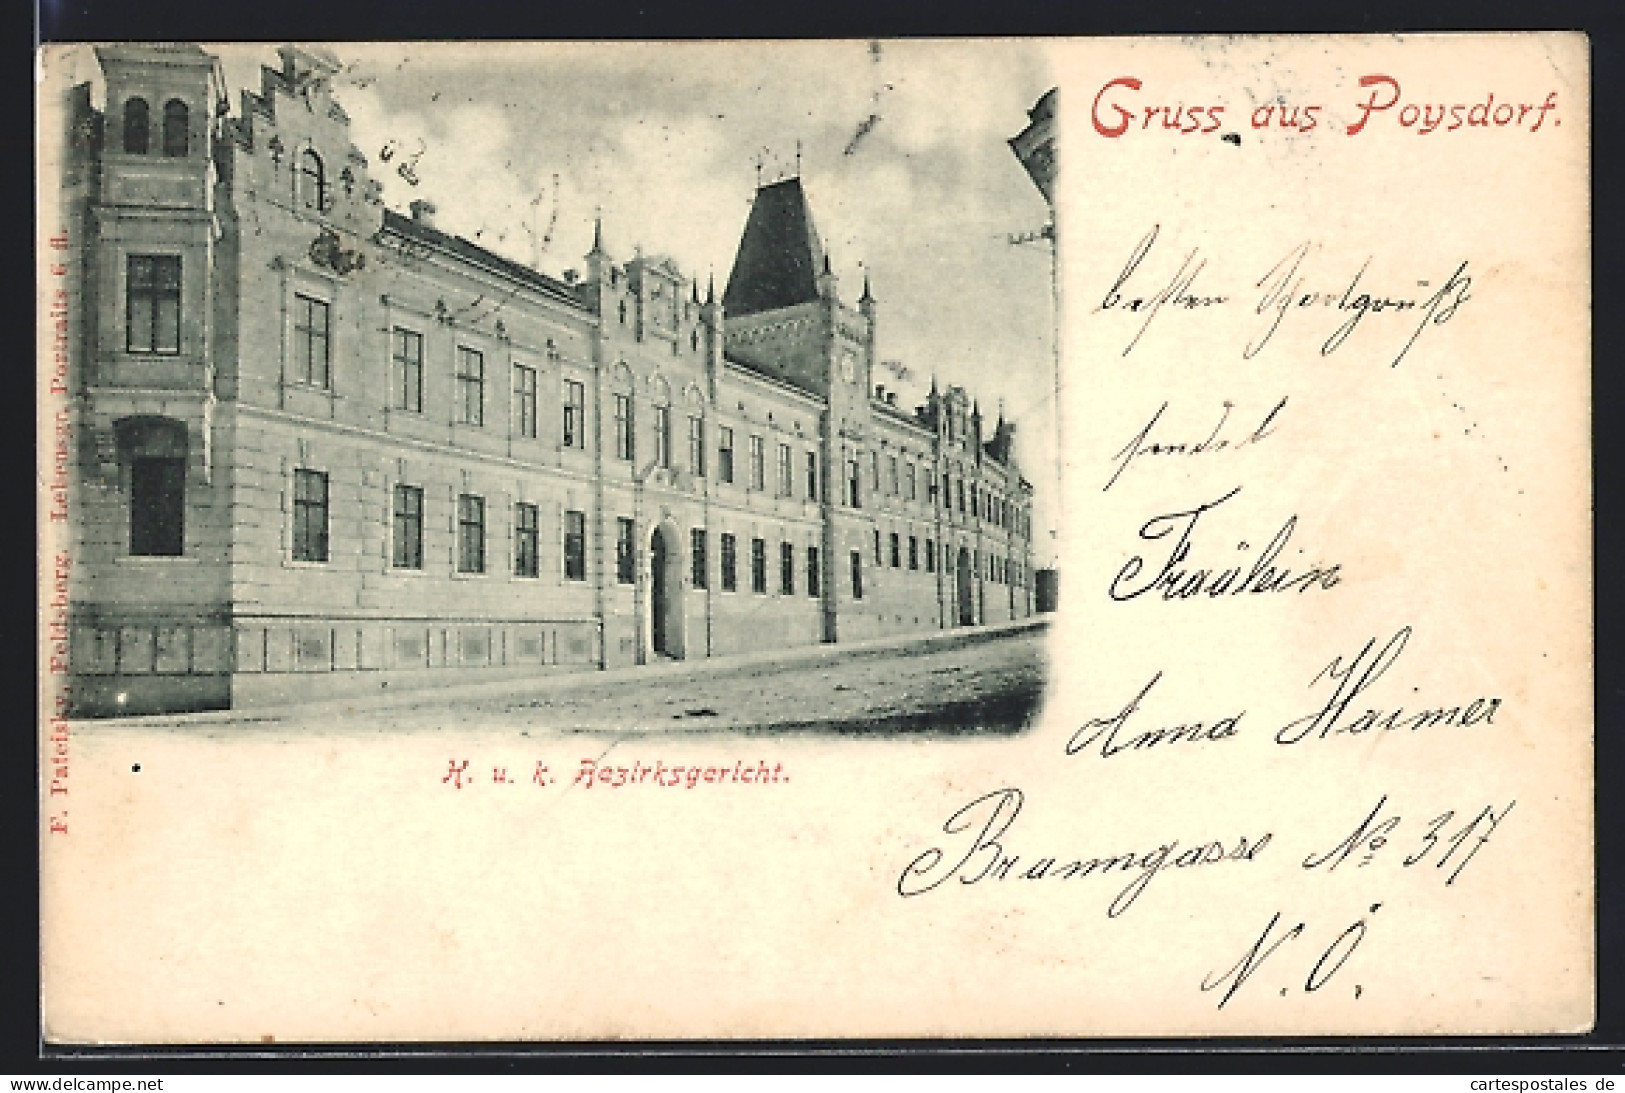 Gruss aus Poysdorf.
besten
sendet
Fräulein
Anna Haimer
Brunngasse No 317
N. Ö.
K. u. k. Bezirksgericht.
F. Pateisky, Feldsberg. Lebensgr. Portraits 6 fl.
delcampe.net/willi1957
cartespostales de